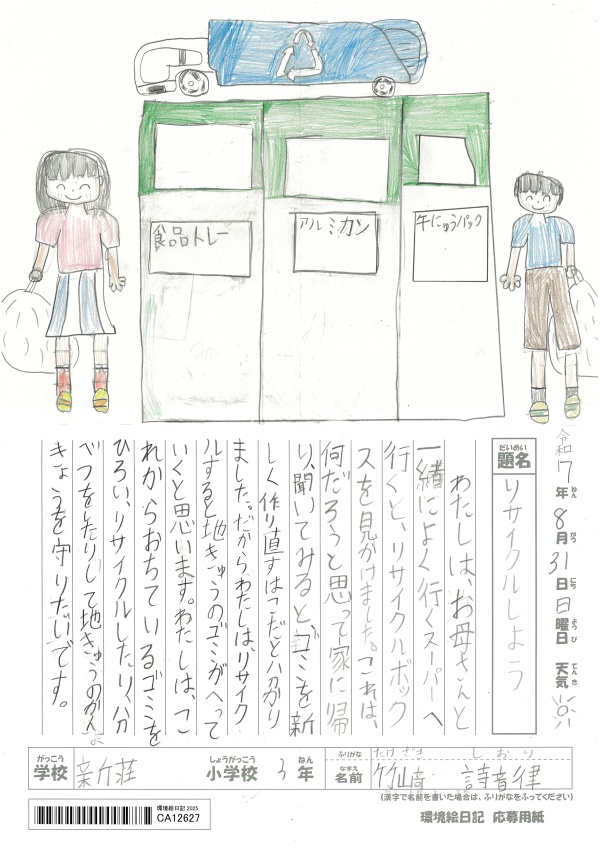 食品トレー
アルミカン
牛にゅうパック
令和7年8月31日日曜日 天気
ねん がつ にち ようび てんき
だいめい
題名 リサイクルしよう
わたしは、お母さんと
一緒によく行くスーパーへ
行くと、リサイクルボック
スを見かけました。これは、
何だろうと思って家に帰
り、聞いてみると、ゴミを新
しく作り直すはこだと分かり
ました。だからわたしは、リサイク
ルすると地きゅうのゴミがへって
いくと思います。わたしは、こ
れからおちているゴミを
ひろい、リサイクルしたり、分
べつをしたりして地きゅうのかん
きょうを守りたいです。
がっこう しょうがっこう ねん ふりがな たけざき しおり
学校 新荘 小学校 3年 なまえ 名前 竹山奇 詩音律
(漢字で名前を書いた場合は、ふりがなをふってください)
環境絵日記 2025
CA12627
環境絵日記 応募用紙